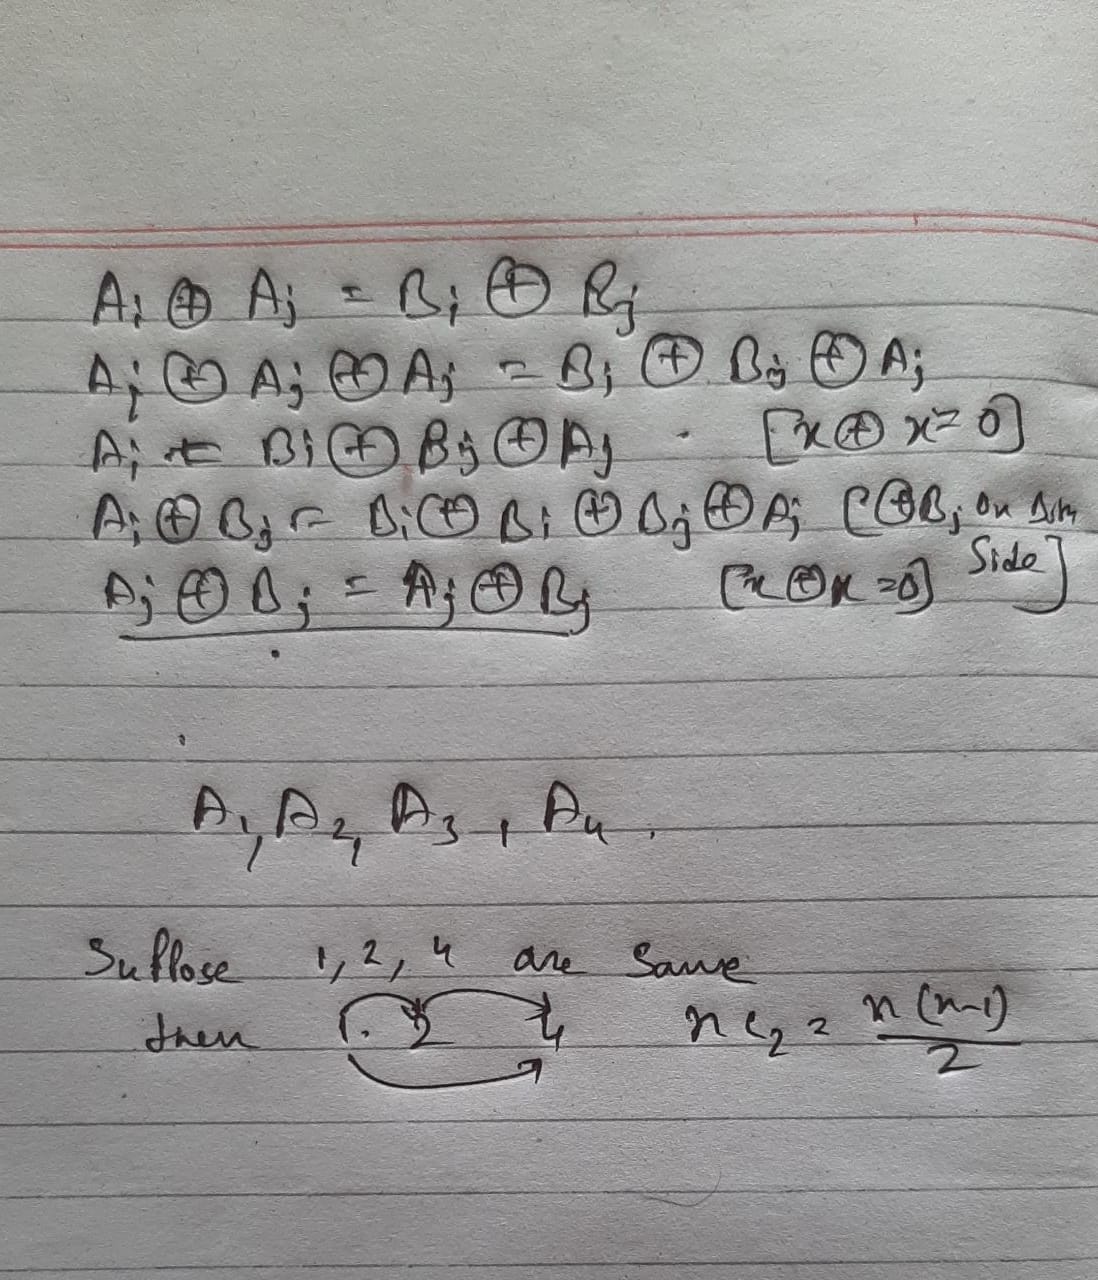 Ai ⊕ Aj = Bi ⊕ Bj
Ai ⊕ Aj ⊕ Aj = Bi ⊕ Bj ⊕ Aj
Ai = Bi ⊕ Bj ⊕ Aj . [x ⊕ x = 0]
Ai ⊕ Bj = Bi ⊕ Bi ⊕ Bj ⊕ Aj [⊕Bi on both
Side]
Ai ⊕ Bi = Aj ⊕ Bj [x ⊕ x = 0]
A1, A2, A3, A4.
Suppose 1, 2, 4 are same
then 1. 2 4 nc2 = n(n-1)/2